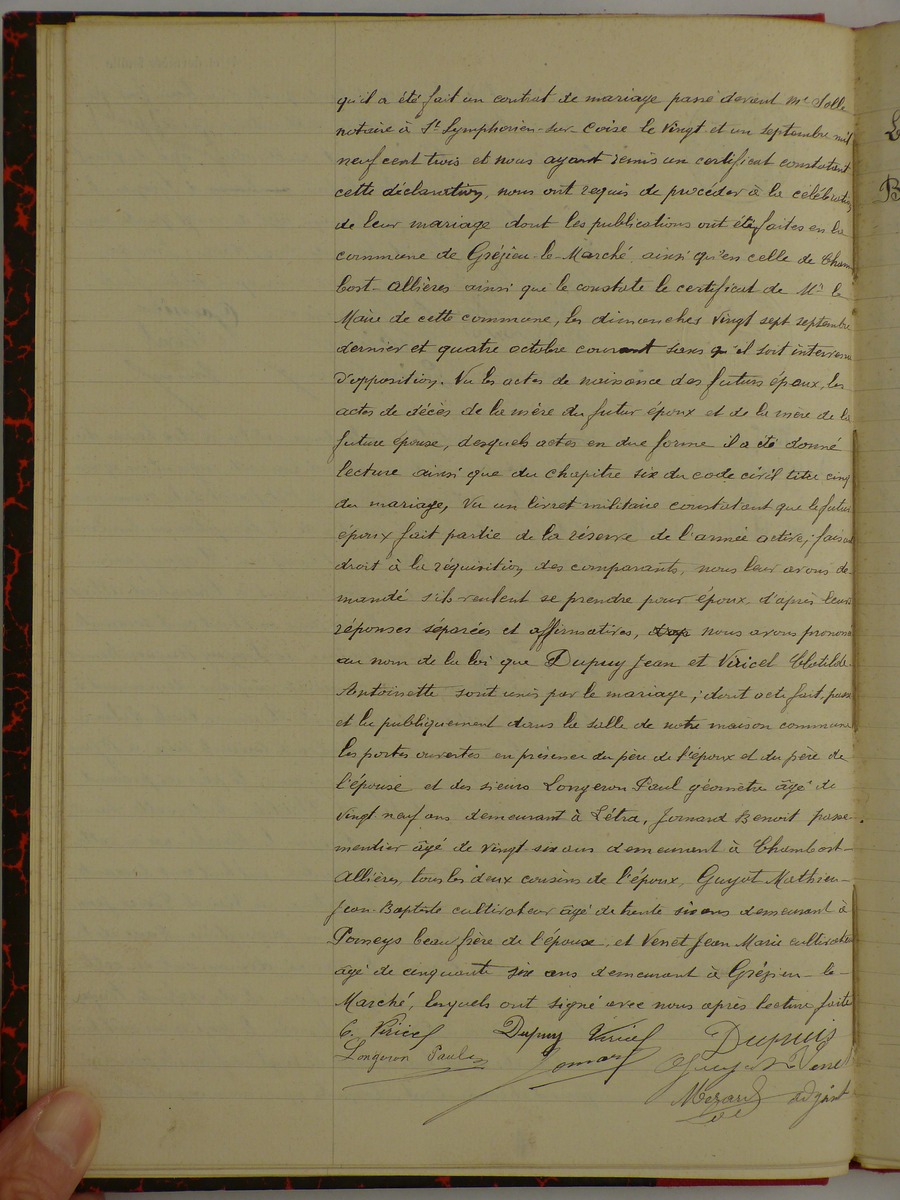 qu'il a été fait un contrat de mariage passé devant Me Solle
notaire à St Symphorien-sur Coise le vingt et un septembre mil
neuf cent trois et nous ayant remis un certificat constatant
cette déclaration, nous ont requis de procéder à la célébration
de leur mariage dont les publications ont été faites en la
commune de Grézieu-le-Marché ainsi qu'en celle de Cham
bost-Allières ainsi que le constate le certificat de Mr le
Maire de cette commune, les dimanches vingt sept septembre
dernier et quatre octobre courant sans qu'il soit intervenu
d'opposition. Vu les actes de naissance des futurs époux, les
actes de décès de la mère du futur époux et de la mère de la
future épouse, desquels actes en due forme il a été donné
lecture ainsi que du chapitre six du code civil titre cinq
du mariage, Vu un livret militaire constatant que le futur
époux fait partie de la réserve de l'armée active; faisant
droit à la réquisition des comparants, nous leur avons de-
mandé s'ils veulent se prendre pour époux, d'après leurs
réponses séparées et affirmatives, nous avons prononcé
au nom de la loi que Dupuy Jean et Viricel Clotilde-
Antoinette sont unis par le mariage; dont acte fait, passé
et lu publiquement dans la salle de notre maison commune
les portes ouvertes en présence du père de l'époux et du père de
l'épouse et des sieurs Longeron Paul géomètre âgé de
vingt neuf ans demeurant à Létra, Jomard Benoit passe-
mentier âgé de vingt-six ans demeurant à Chambost-
Allières, tous les deux cousins de l'époux, Guyot Mathieu-
Jean-Baptiste cultivateur âgé de trente six ans demeurant à
Pomeys beau frère de l'épouse, et Venet Jean Marie cultivateur
âgé de cinquante six ans demeurant à Grézieu-le-
Marché, lesquels ont signé avec nous après lecture faite
C. Viricel Dupuy Viricel Dupuis
Longeron Paul Jomard Guyot Venet
adjoint